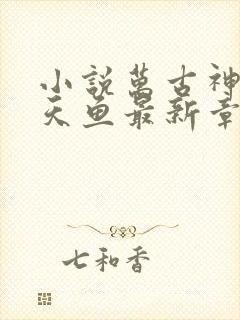 小說萬古神
天魚最新章
七和香